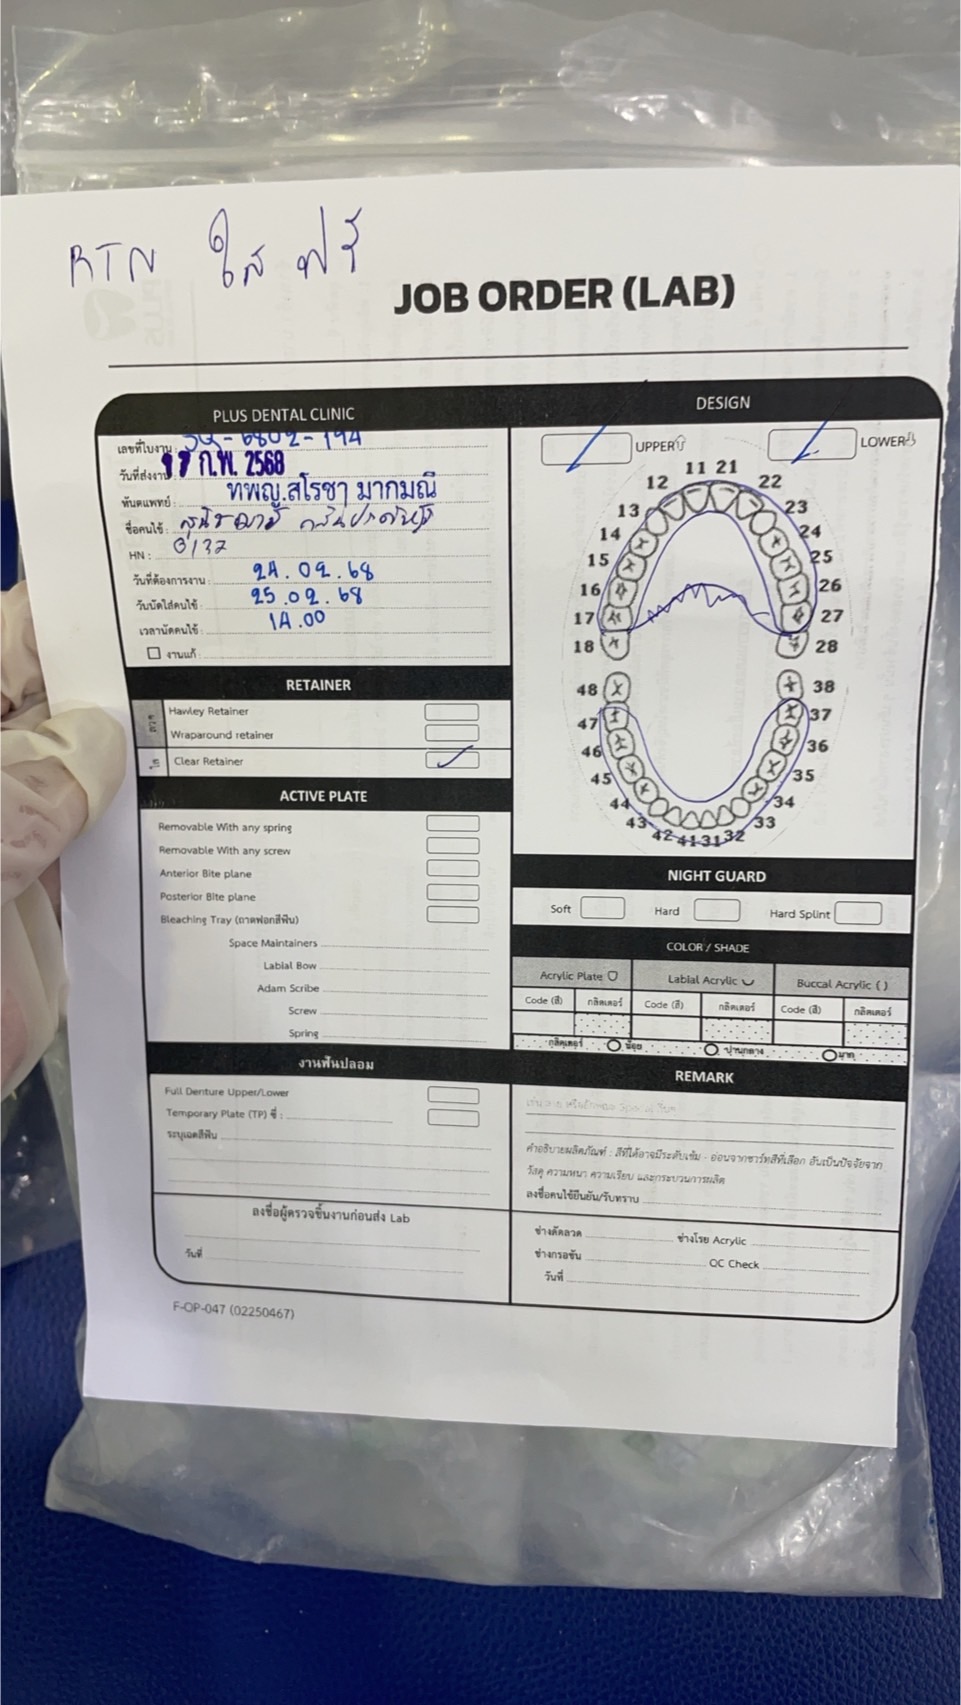 RTN ใส ฟรี
JOB ORDER (LAB)
PLUS DENTAL CLINIC
เลขที่ใบงาน : SQ-6802-194
วันที่ส่งงาน 17 ก.พ. 2568
ทันตแพทย์ : ทพญ.สโรชา มากมณี
ชื่อคนไข้ :
HN : 0132
วันที่ต้องการงาน : 24.02.68
วันนัดใส่คนไข้ : 25.02.68
เวลานัดคนไข้ : 14.00
งานแก้ :
RETAINER
ลวด
Hawley Retainer
Wraparound retainer
ใส
Clear Retainer
ACTIVE PLATE
Removable With any spring
Removable With any screw
Anterior Bite plane
Posterior Bite plane
Bleaching Tray (ถาดฟอกสีฟัน)
Space Maintainers
Labial Bow
Adam Scribe
Screw
Spring
งานฟันปลอม
Full Denture Upper/Lower
Temporary Plate (TP) ซี่ :
ระบุเฉดสีฟัน
ลงชื่อผู้ตรวจชิ้นงานก่อนส่ง Lab
วันที่
F-OP-047 (02250467)
DESIGN
UPPER LOWER
11 21
12 22
13 23
14 24
15 25
16 26
17 27
18 28
48 38
47 37
46 36
45 35
44 34
43 33
42 41 31 32
NIGHT GUARD
Soft Hard Hard Splint
COLOR / SHADE
Acrylic Plate Labial Acrylic Buccal Acrylic ( )
Code (สี) กลิตเตอร์ Code (สี) กลิตเตอร์ Code (สี) กลิตเตอร์
กลิตเตอร์ น้อย ปานกลาง มาก
REMARK
คำอธิบายผลิตภัณฑ์ : สีที่ได้อาจมีระดับเข้ม - อ่อนจากชาร์ทสีที่เลือก อันเป็นปัจจัยจาก
วัสดุ ความหนา ความเรียบ และกระบวนการผลิต
ลงชื่อคนไข้ยืนยัน/รับทราบ
ช่างดัดลวด ช่างโรย Acrylic
ช่างกรอขัน QC Check
วันที่